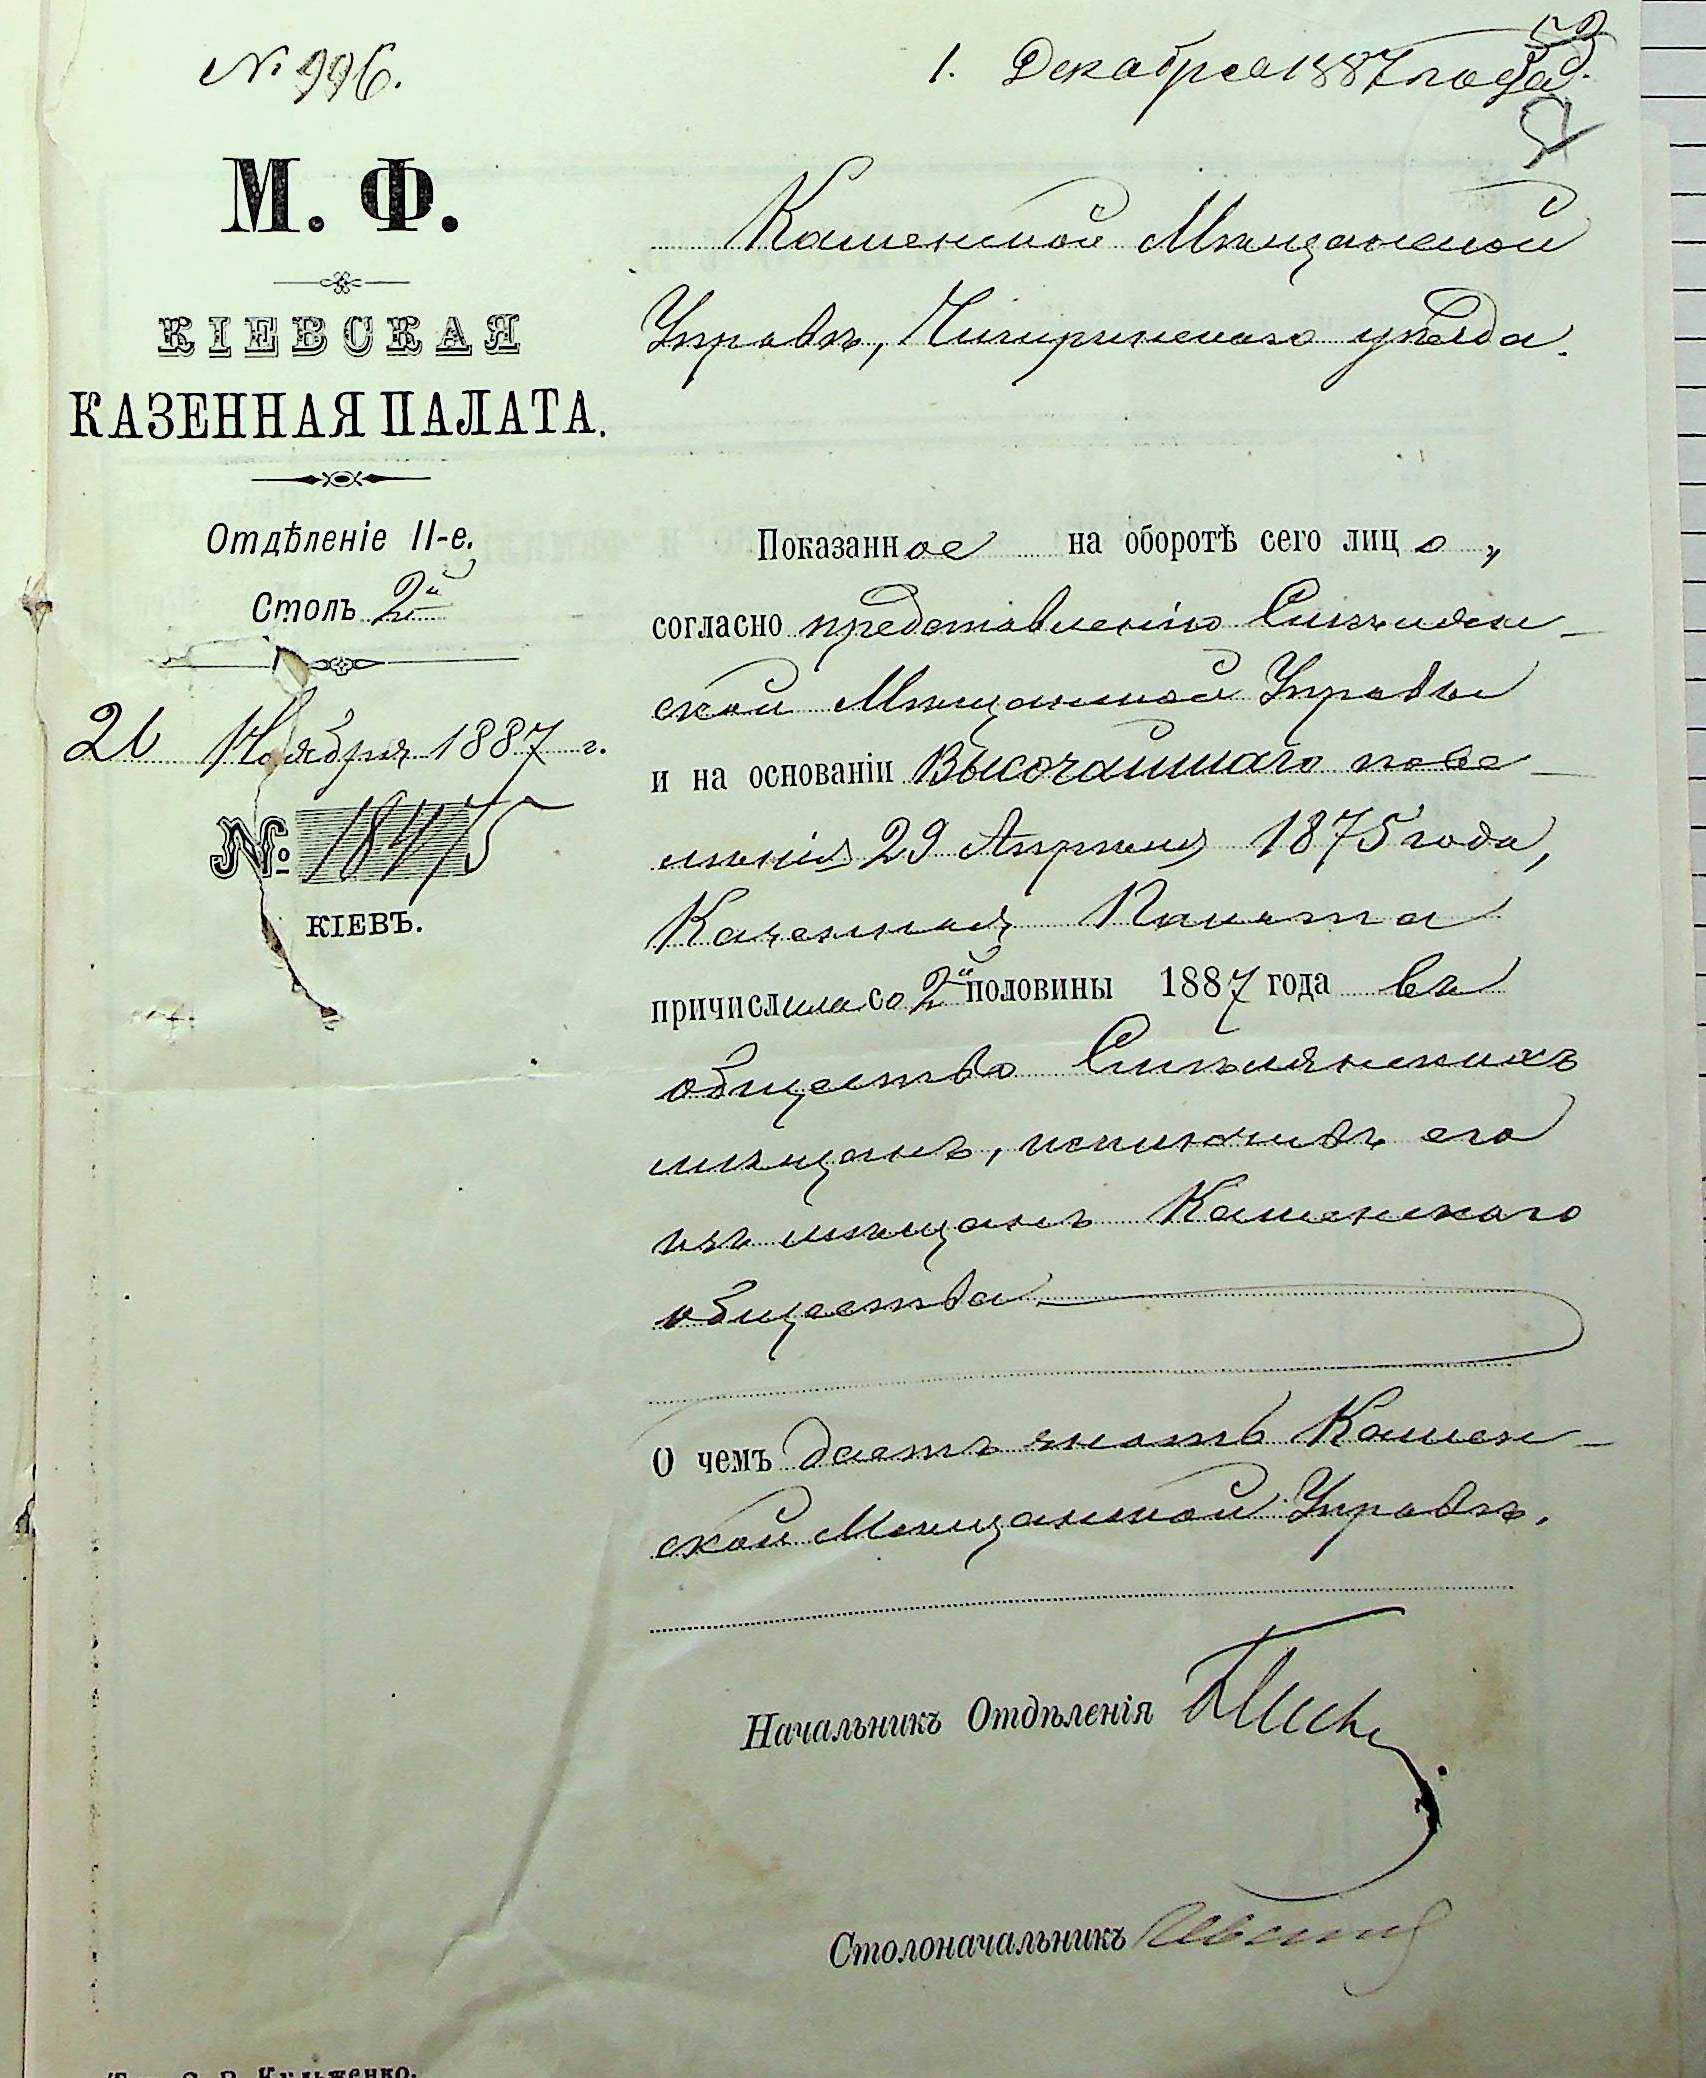 № 996.
1. Декабря 1887 года.
М. Ф.
КІЕВСКАЯ
КАЗЕННАЯ ПАЛАТА.
Отдѣленіе II-е.
Столъ 2й
26 Ноября 1887 г.
№ 18475
КІЕВЪ.
Каменской Мѣщанской
Управѣ, Чигиринскаго уѣзда.
Показанное на оборотѣ сего лицо,
согласно представленію Смѣлян-
ской Мѣщанской Управы
и на основаніи Высочайшаго пове-
лѣнія 29 Апрѣля 1875 года,
Казенная Палата
причислила со 2й половины 1887 года въ
общество Смѣлянскихъ
мѣщанъ, исключивъ его
изъ мѣщанъ Каменскаго
общества
О чемъ даетъ знать Камен-
ской Мѣщанской Управѣ.
Начальникъ Отдѣленія
Столоначальникъ
Кульженко.